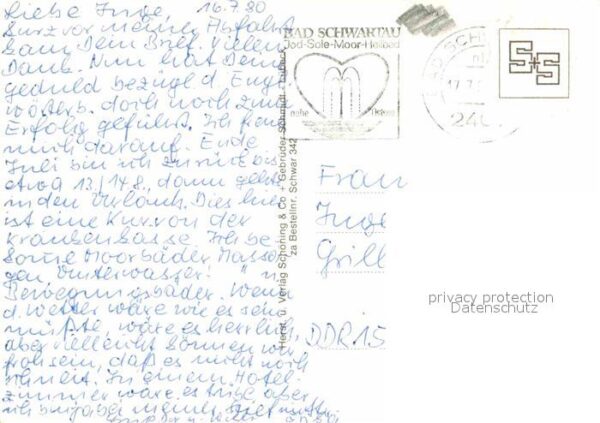 Liebe Inge, 16.7.80
Kurz vor meiner Abfahrt
kam Dein Brief. Vielen
Dank. Nun hat Deine
geduld bezügl. d. Engl.
wörterb. doch noch zum
Erfolg geführt. Ich freue
mich darauf. Ende
Juli bin ich zurück bis
etwa 13./14.8., dann geht's
in den Urlaub. Dies hier
ist eine Kur von der
Krankenkasse. Ich be
komme Moorbäder, Massa
gen, Unterwasser! " u.
Bewegungsbäder. Wenn
d. Wetter wäre wie es sein
müßte, wäre es herrlich,
aber vielleicht können wir
froh sein, daß es nicht noch
schneit. In einem Hotel-
zimmer wäre es trübe, aber
ich
BAD SCHWARTAU
Jod-Sole-Moor-Heilbad
nahe
BAD SCH
17.7.
240
S+S
Herst. u. Verlag Schöning & Co + Gebrüder Schmidt · Lübeck
za Bestellnr. Schwar 342
Frau
Inge
Grill
DDR 15
privacy protection
Datenschutz